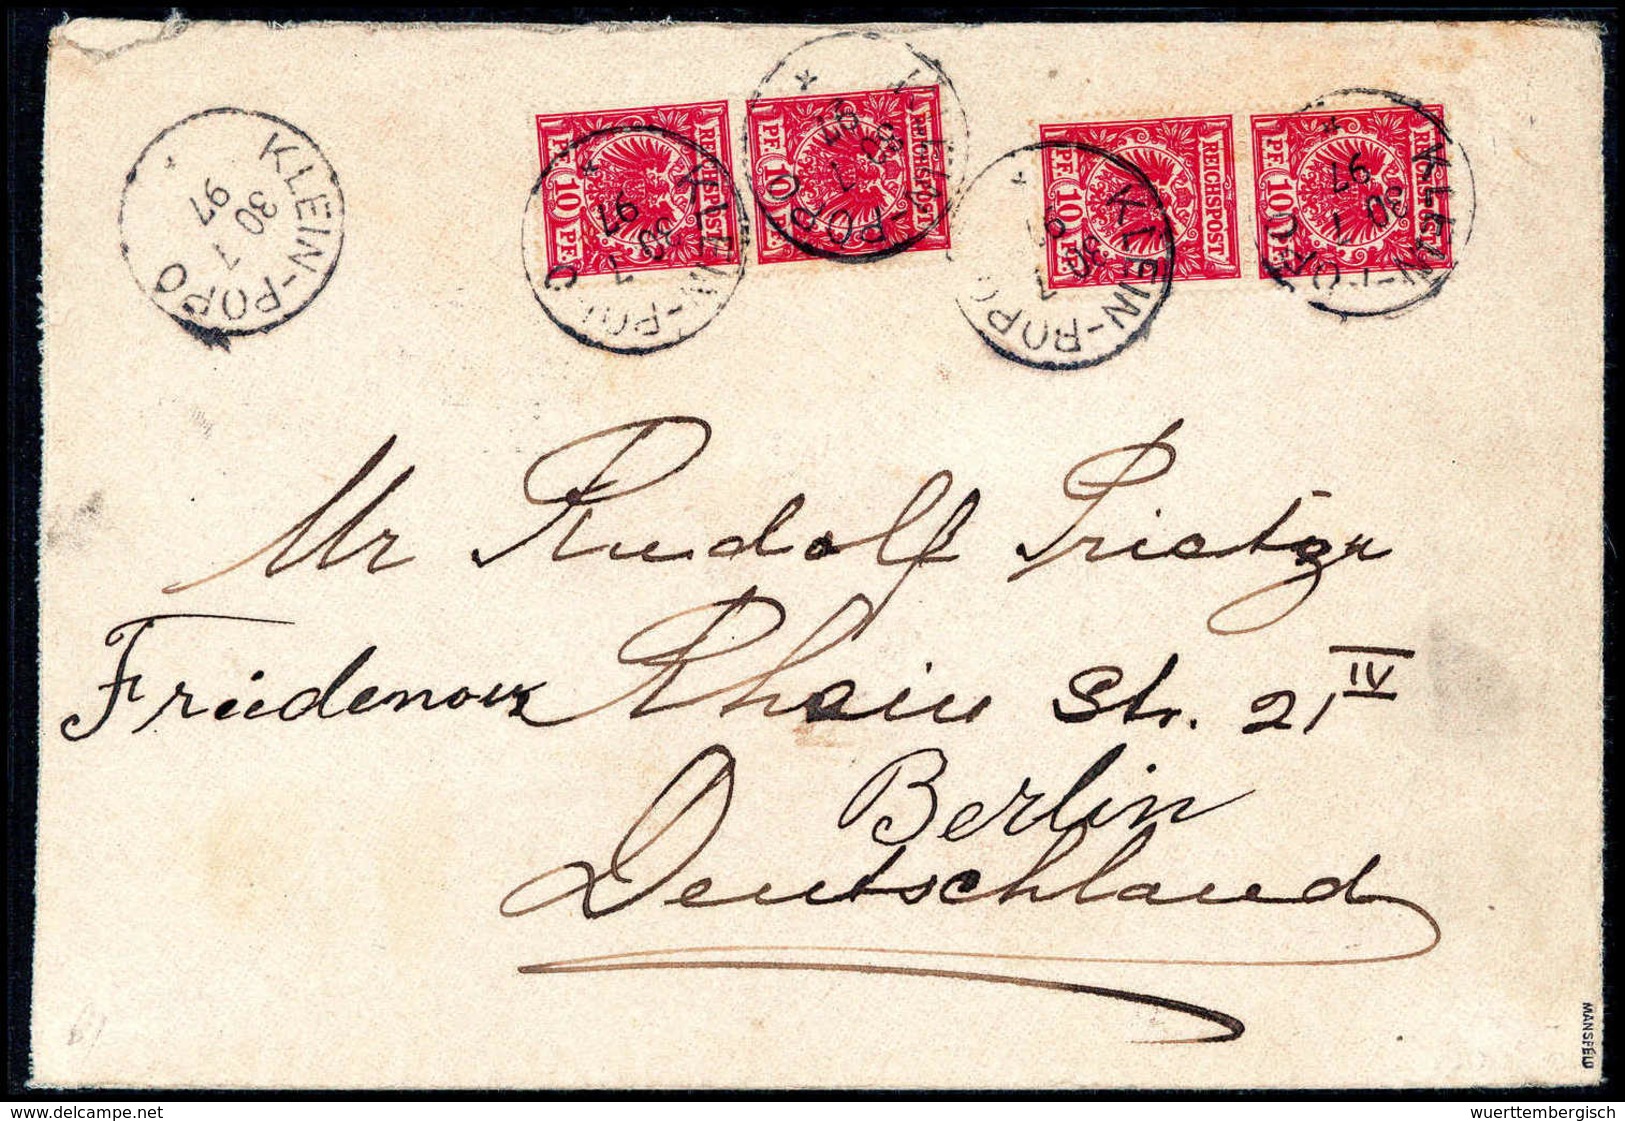 KLEIN-POPO
30
7
97
REICHSPOST
10 PF.
KLEIN-POPO
30
7
97
REICHSPOST
10 PF.
KLEIN-POPO
30
7
97
REICHSPOST
10 PF.
KLEIN-POPO
30
7
97
REICHSPOST
10 PF.
KLEIN-POPO
30
7
97
Mr Rudolf
Rhein Str. 21 IV
Berlin
Deutschland
MANSFELD
www.delcampe.net
wuerttembergisch